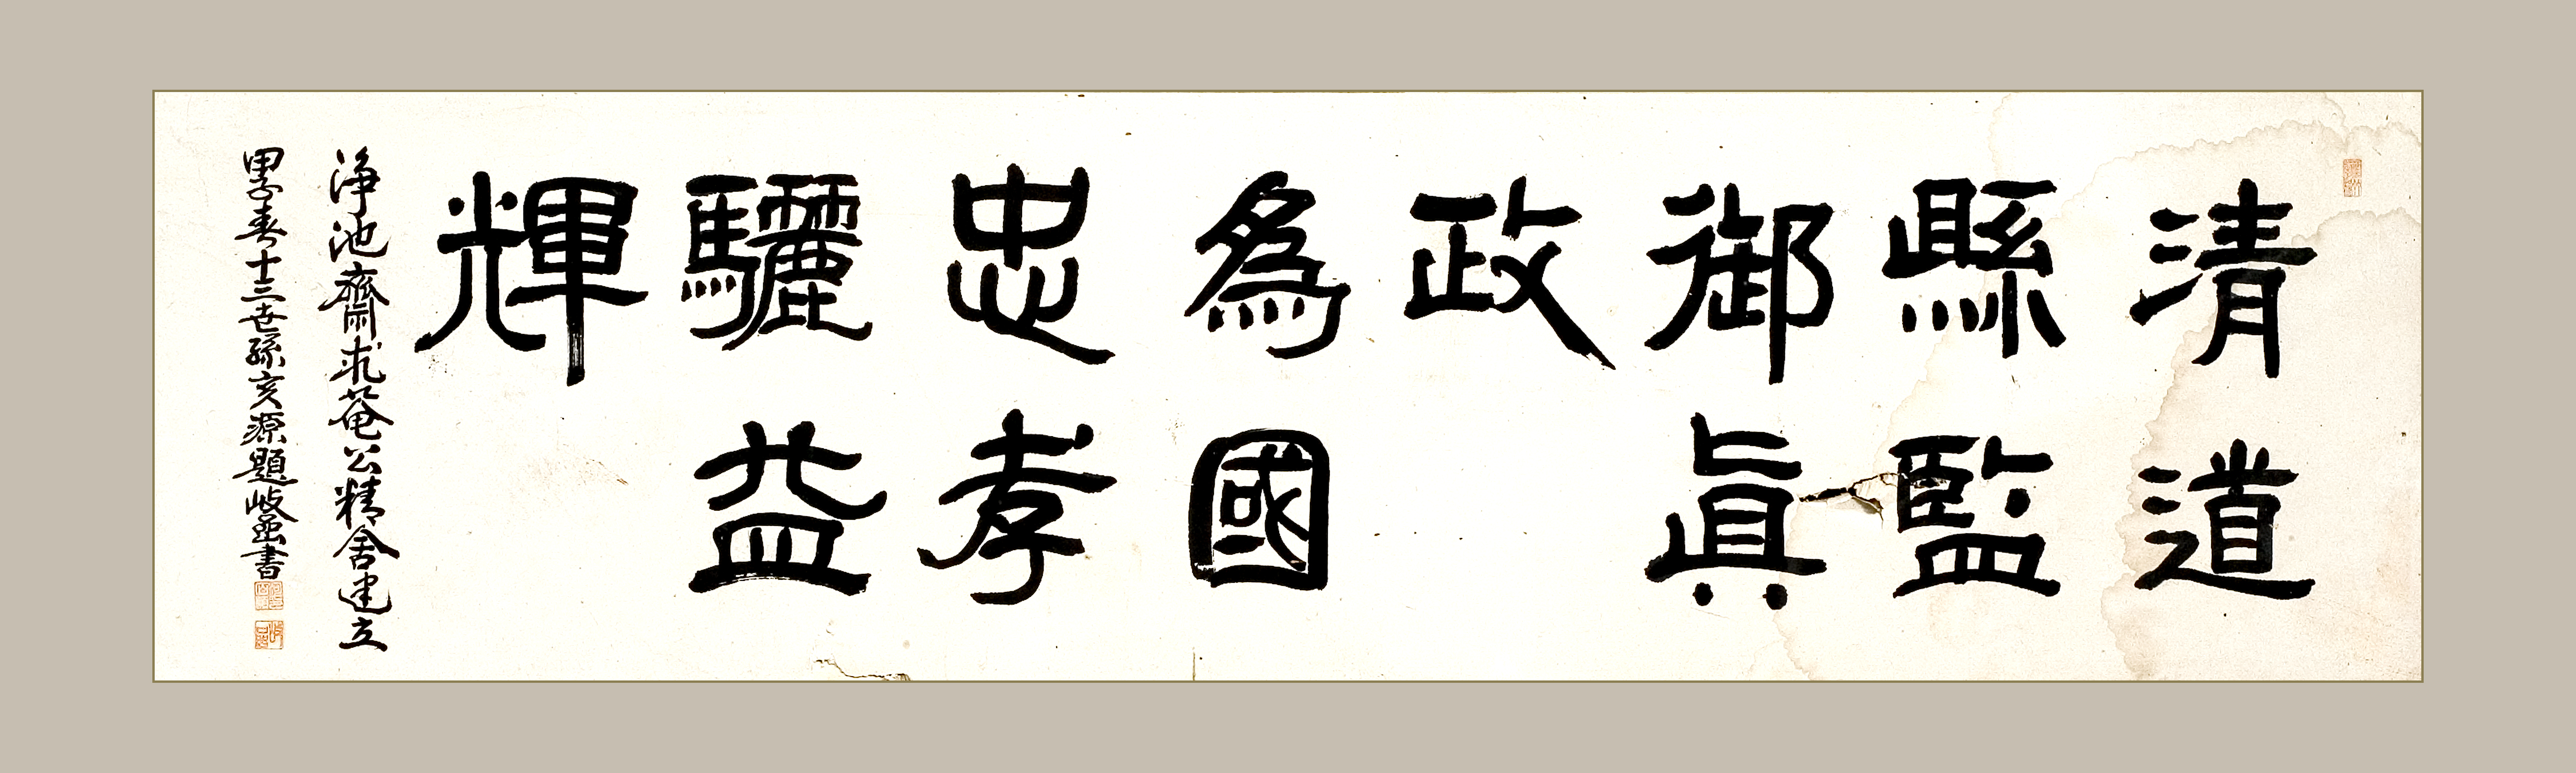 清道
縣監
御眞
政
爲國
忠孝
驪益
輝
淨池齋求菴公精舍建立
甲子春十三世孫亥源題岐堂書